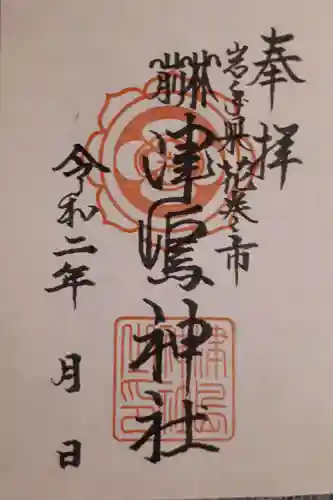 奉拝
岩手県花巻市
津嶋神社
令和二年 月 日